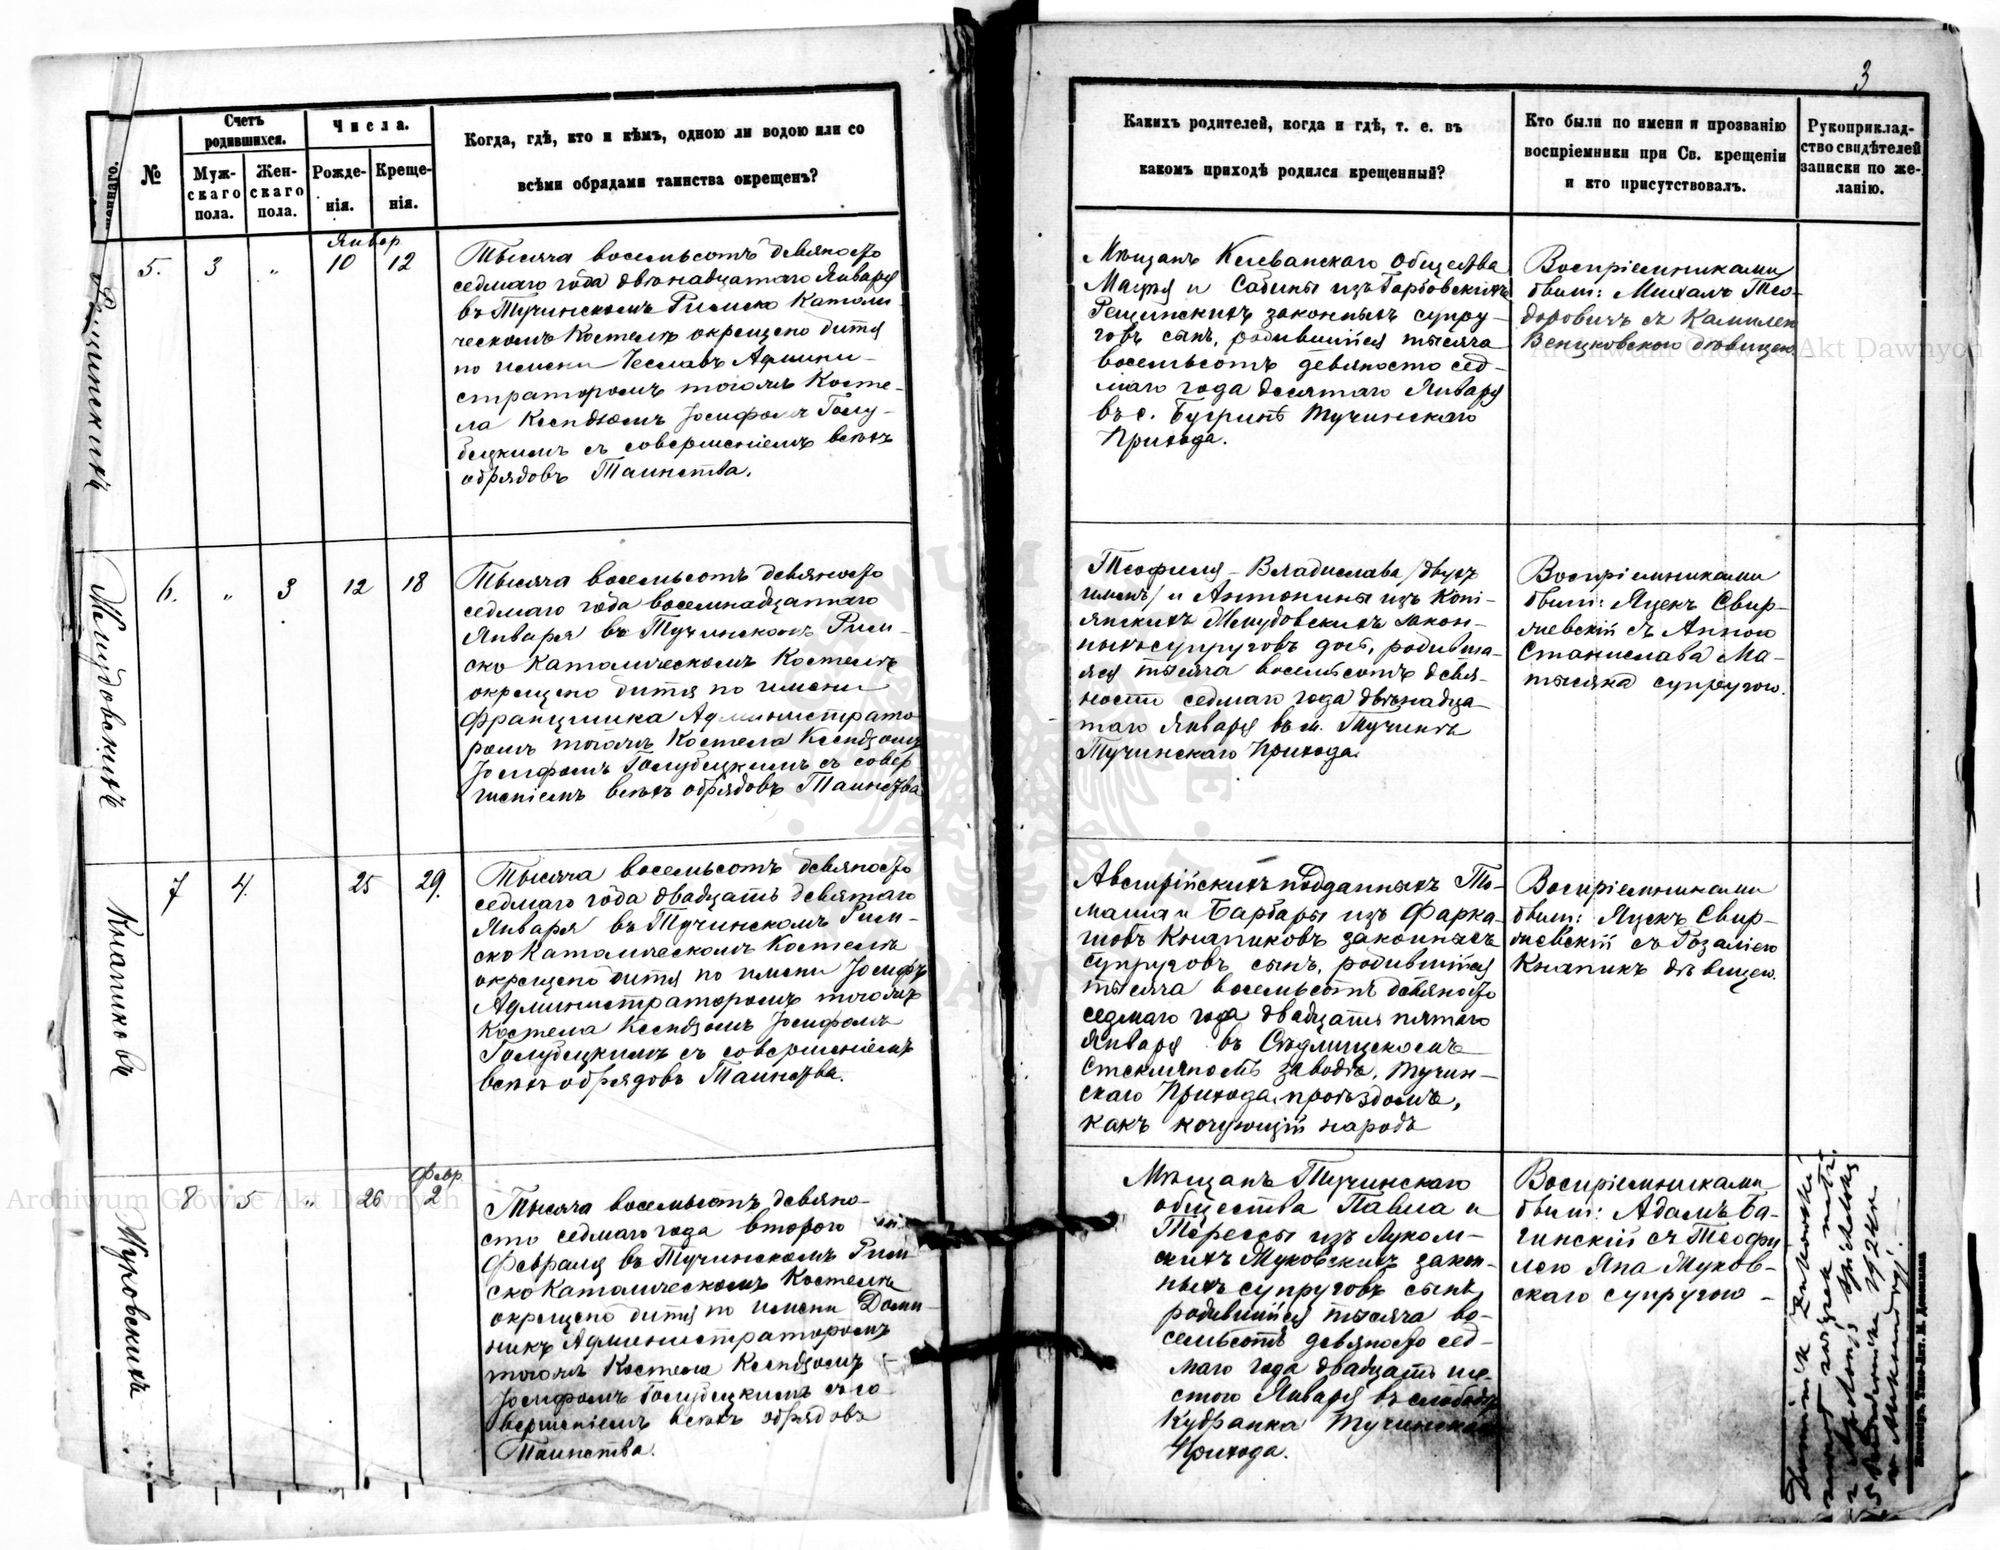 3
Счетъ
родившихся.
Числа.
Когда, гдѣ, кто и кѣмъ, одною ли водою или со
всѣми обрядами таинства окрещенъ?
№
Муж-
скаго
пола.
Жен-
скаго
пола.
Рожде-
нія.
Креще-
нія.
Какихъ родителей, когда и гдѣ, т. е. въ
какомъ приходѣ родился крещенный?
Кто были по имени и прозванію
воспріемники при Св. крещеніи
и кто присутствовалъ.
Рукоприклад-
ство свидѣтелей
записки по же-
ланію.
Январ
5. 3 „ 10 12
Тысяча восемьсотъ девяносто
седмаго года двѣнадцатаго Января
въ Тучинскомъ Римско Католи-
ческомъ Костелѣ окрещено дитя
по имени Чеславъ Админи-
страторомъ тогожъ Косте-
ла Ксендзомъ Іосифомъ Голу-
бецкимъ съ совершеніемъ всѣхъ
обрядовъ Таинства.
Мѣщанъ Клеванскаго Общества
и Сабины изъ Горбовскихъ
законныхъ супру-
говъ сынъ, родившійся тысяча
восемьсотъ девяносто сед-
маго года десятаго Января
въ с. Бугринѣ Тучинскаго
Прихода.
Воспріемниками
были: Михалъ Тео-
доровичъ съ
дѣвицею.
6. „ 3 12 18
Тысяча восемьсотъ девяносто
седмаго года восемнадцатаго
Января въ Тучинскомъ Рим-
ско Католическомъ Костелѣ
окрещено дитя по имени
Францишка Администрато-
ромъ тогожъ Костела Ксендзомъ
Іосифомъ Голубецкимъ съ совер-
шеніемъ всѣхъ обрядовъ Таинства
Теофиля-Владислава /двухъ
именъ/ и Антонины изъ
закон-
ныхъ супруговъ дочь, родивша-
яся тысяча восемьсотъ девя-
носто седмаго года двѣнадца-
таго Января въ м. Тучинѣ
Тучинскаго Прихода.
Воспріемниками
были: Яцекъ Свир-
чевскій съ Анною
Станислава Ма-
тысяка супругою.
Кнапиковъ
7 4. 25 29.
Тысяча восемьсотъ девяносто
седмаго года двадцать девятаго
Января въ Тучинскомъ Рим-
ско Католическомъ Костелѣ
окрещено дитя по имени Іосифъ
Администраторомъ тогожъ
Костела Ксендзомъ Іосифомъ
Голубецкимъ съ совершеніемъ
всѣхъ обрядовъ Таинства.
Австрійскихъ подданныхъ То-
маша и Барбары изъ Фарка-
шовъ Кнапиковъ законныхъ
супруговъ сынъ, родившійся
тысяча восемьсотъ девяносто
седмаго года двадцать пятаго
Января въ
Стеклянномъ заводѣ, Тучин-
скаго Прихода, проѣздомъ,
какъ кочующій народъ
Воспріемниками
были: Яцекъ Свир-
чевскій съ Розаліею
Кнапикъ дѣвицею.
Муковскихъ
Февр
8 5 „ 26 2
Тысяча восемьсотъ девяно-
сто седмаго года второго
Февраля въ Тучинскомъ Рим
ско Католическомъ Костелѣ
окрещено дитя по имени Доми-
никъ Администраторомъ
тогожъ Костела Ксендзомъ
Іосифомъ Голубецкимъ съ со-
вершеніемъ всѣхъ обрядовъ
Таинства.
Мѣщанъ Тучинскаго
общества Павла и
Терессы изъ Луком-
скихъ Муковскихъ закон-
ныхъ супруговъ сынъ,
родившійся тысяча во-
семьсотъ девяносто сед-
маго года двадцать ше-
стого Января въ слободѣ
Кудранка Тучинскаго
Прихода.
Воспріемниками
были: Адамъ Ба-
гинскій съ Теофи-
лею Яна Муков-
скаго супругою -
Archiwum Główne Akt Dawnych
Archiwum Główne Akt Dawnych